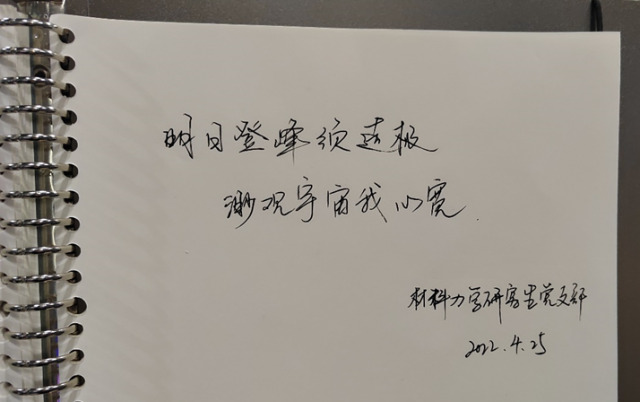 明日登峰须造极
渺观宇宙我心宽
材料力学研究生党支部
2022.4.25